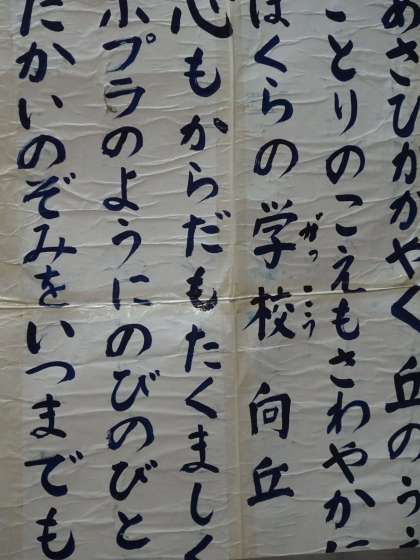 あさひかがやく丘のう
ことりのこえもさわやかに
ぼくらの学校 向丘
がっこう
心もからだもたくましく
ポプラのようにのびのびと
たかいのぞみをいつまでも